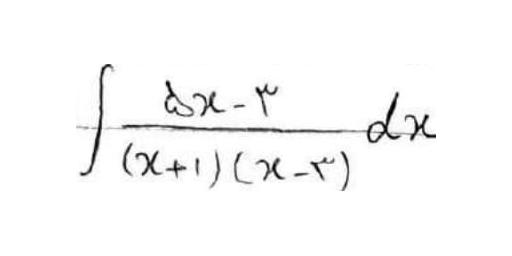 ∫ (۵x-۳)/((x+۱)(x-۳)) dx